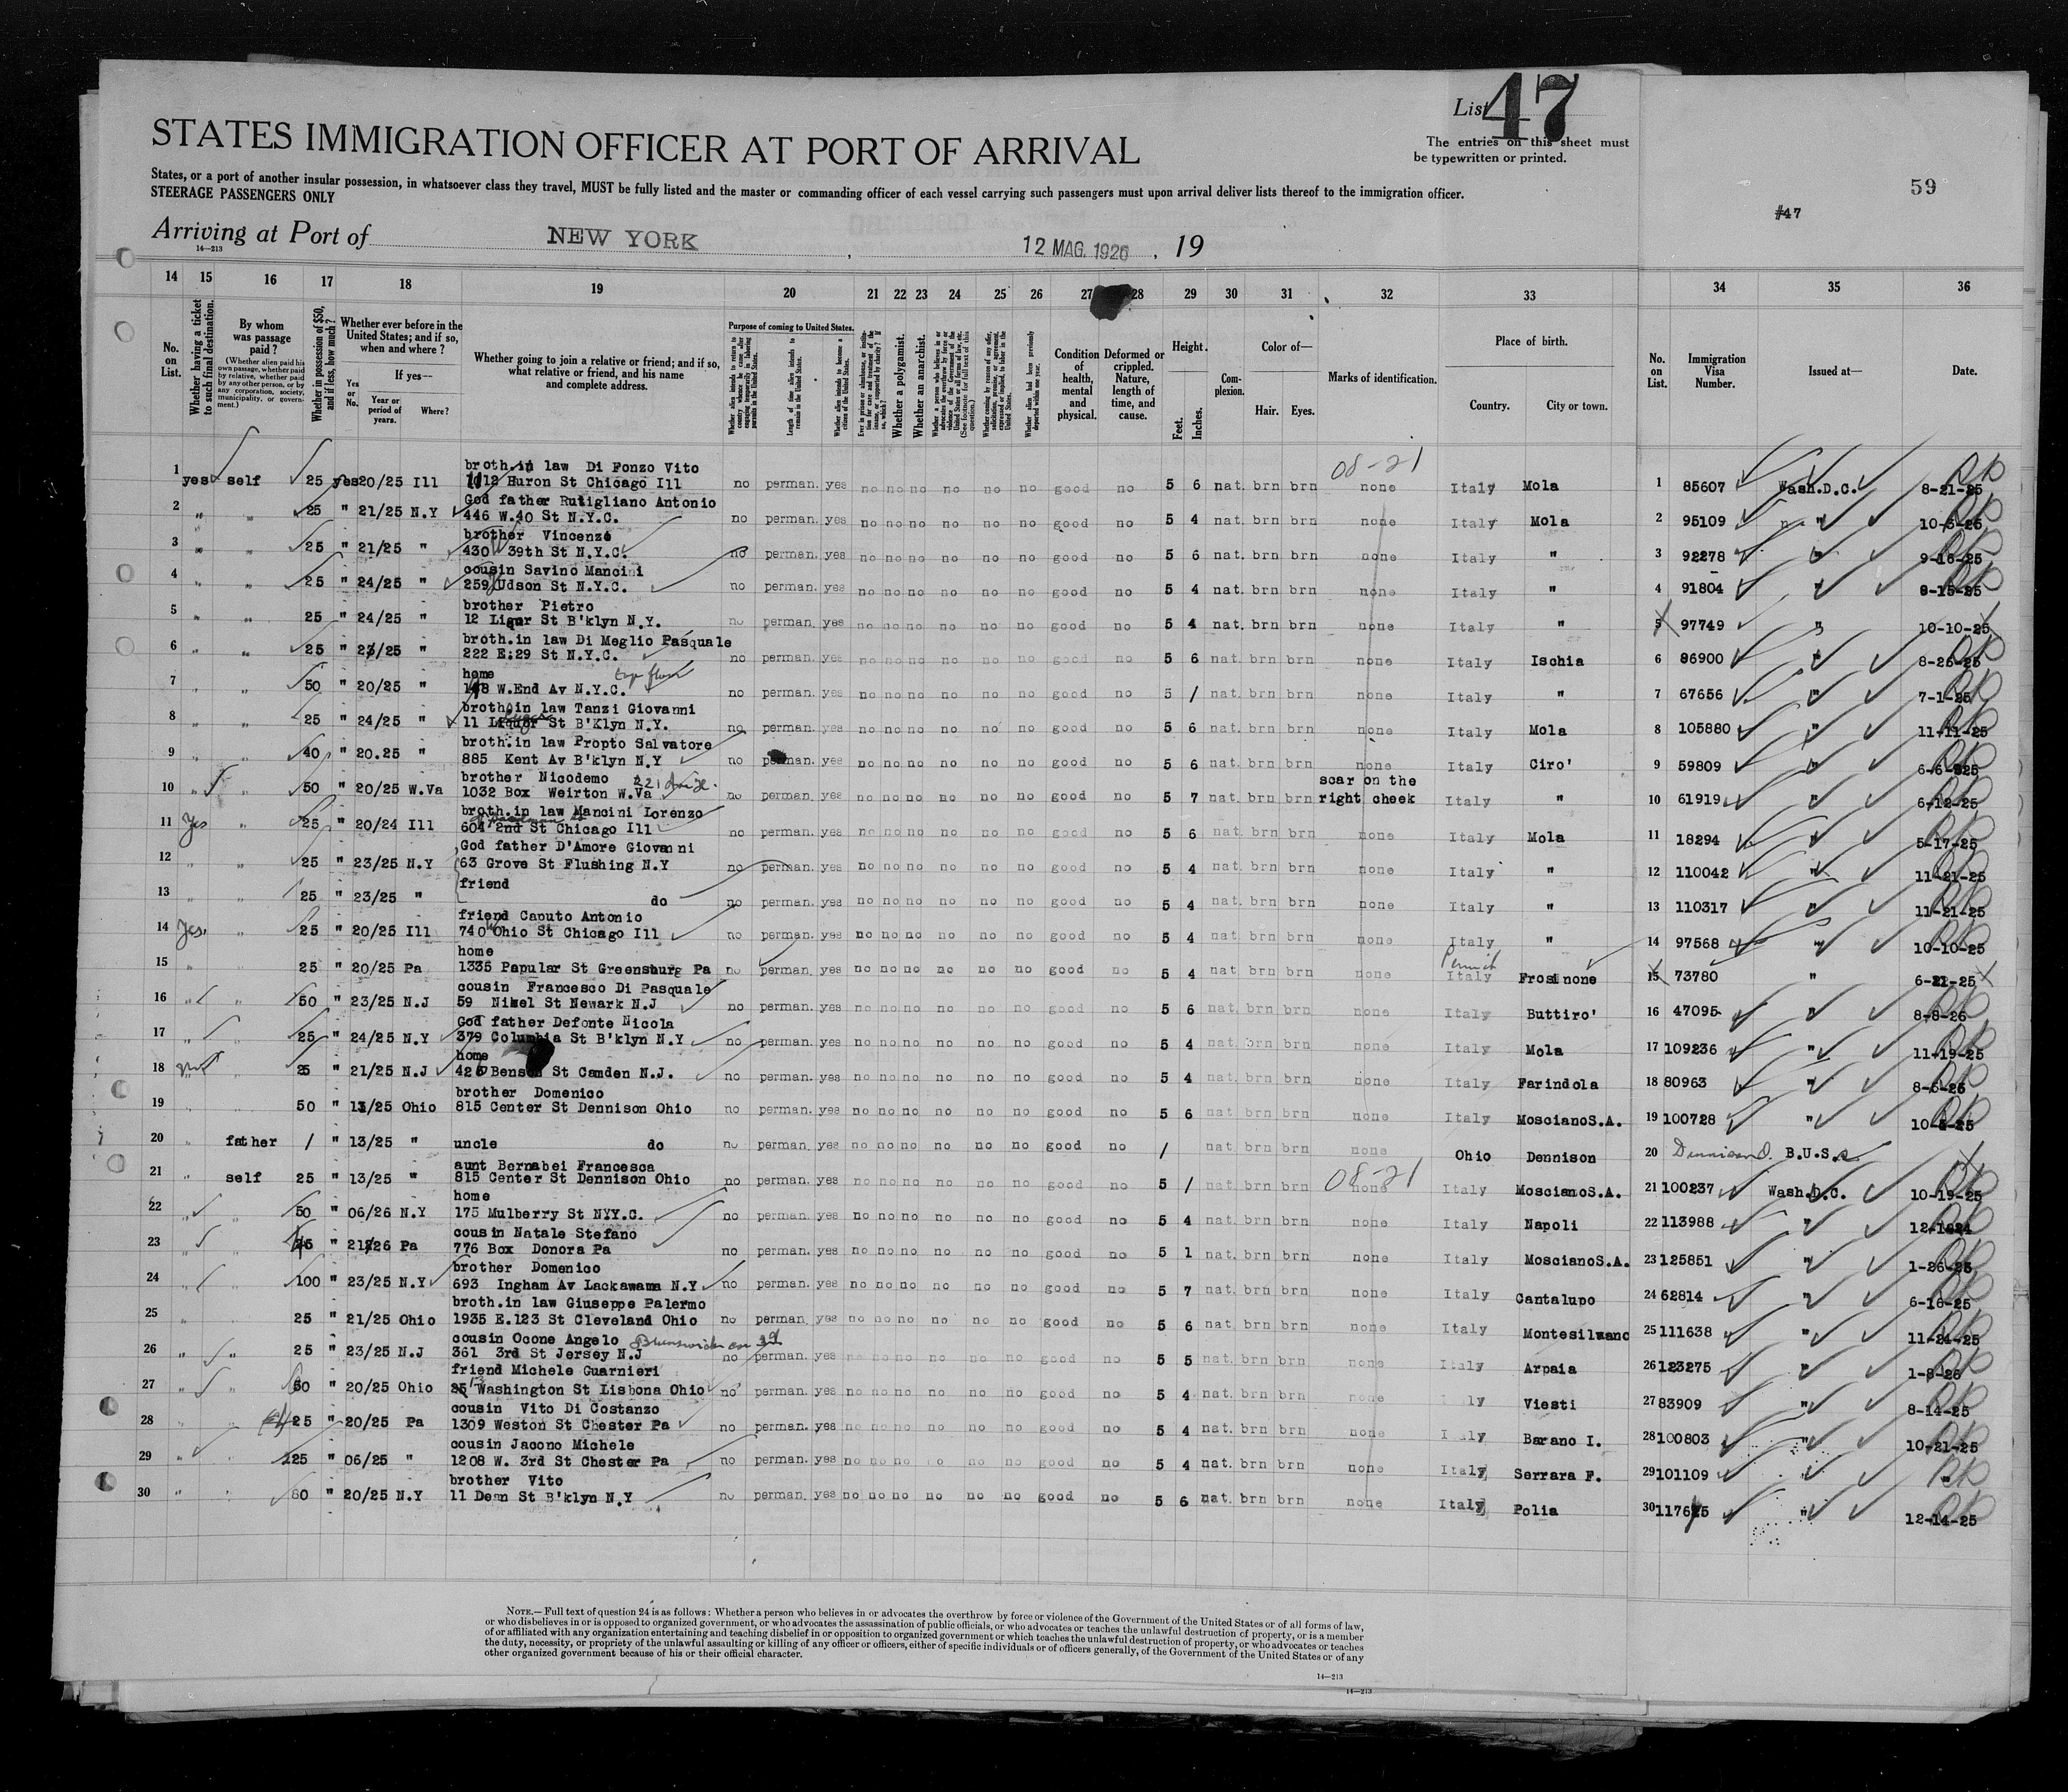 List 47
STATES IMMIGRATION OFFICER AT PORT OF ARRIVAL
The entries on this sheet must
be typewritten or printed.
59
#47
States, or a port of another insular possession, in whatsoever class they travel, MUST be fully listed and the master or commanding officer of each vessel carrying such passengers must upon arrival deliver lists thereof to the immigration officer.
STEERAGE PASSENGERS ONLY
Arriving at Port of NEW YORK , 12 MAG. 1926 , 19
14—213
14 15 16 17 18 19 20 21 22 23 24 25 26 27 28 29 30 31 32 33 34 35 36
No. on List.
Whether having a ticket to such final destination.
By whom was passage paid?
(Whether alien paid his own passage, whether paid by relative, whether paid by any other person, or by any corporation, society, municipality, or government.)
Whether in possession of $50, and if less, how much?
Whether ever before in the United States; and if so, when and where?
Yes or No.
If yes—
Year or period of years.
Where?
Whether going to join a relative or friend; and if so, what relative or friend, and his name and complete address.
Purpose of coming to United States.
Length of time alien intends to remain in the United States.
Whether alien intends to become a citizen of the United States.
Whether a polygamist.
Whether an anarchist.
Condition of health, mental and physical.
Deformed or crippled. Nature, length of time, and cause.
Height.
Feet. Inches.
Complexion.
Color of—
Hair. Eyes.
Marks of identification.
Place of birth.
Country. City or town.
No. on List.
Immigration Visa Number.
Issued at—
Date.
08-21
1 yes self 25 yes 20/25 Ill broth.in law Di Fonzo Vito
1012 Huron St Chicago Ill no perman. yes no no no no no no good no 5 6 nat. brn brn none Italy Mola 1 85607 Wash.D.C. 8-21-25
2 " " 25 " 21/25 N.Y God father Rutigliano Antonio
446 W.40 St N.Y.C. no perman. yes no no no no no no good no 5 4 nat. brn brn none Italy Mola 2 95109 " 10-5-25
3 " " 25 " 21/25 " brother Vincenzo
430 W 39th St N.Y.C. no perman. yes no no no no no no good no 5 6 nat. brn brn none Italy " 3 92278 " 9-16-25
4 " " 25 " 24/25 " cousin Savino Mancini
259 Udson St N.Y.C. no perman. yes no no no no no no good no 5 4 nat. brn brn none Italy " 4 91804 " 9-15-25
5 " " 25 " 24/25 " brother Pietro
12 Liqur St B'klyn N.Y. no perman. yes no no no no no no good no 5 4 nat. brn brn none Italy " 5 97749 " 10-10-25
6 " " 25 " 23/25 " broth.in law Di Meglio Pasquale
222 E;29 St N.Y.C. no perman. yes no no no no no no good no 5 6 nat. brn brn none Italy Ischia 6 86900 " 8-25-25
7 " " 50 " 20/25 " home
148 W.End Av N.Y.C. no perman. yes no no no no no no good no 5 / nat. brn brn none Italy " 7 67656 " 7-1-25
8 " " 25 " 24/25 " broth.in law Tanzi Giovanni
11 Liquor St B'Klyn N.Y. no perman. yes no no no no no no good no 5 6 nat. brn brn none Italy Mola 8 105880 " 11-11-25
9 " " 40 " 20.25 " broth.in law Propto Salvatore
885 Kent Av B'klyn N.Y no perman. yes no no no no no no good no 5 6 nat. brn brn none Italy Ciro' 9 59809 " 6-6-925
10 " " 50 " 20/25 W.Va brother Nicodemo
1032 Box Weirton W.Va no perman. yes no no no no no no good no 5 7 nat. brn brn scar on the right cheek Italy " 10 61919 " 6-12-25
11 Yes " 25 " 20/24 Ill broth.in law Mancini Lorenzo
604 2nd St Chicago Ill no perman. yes no no no no no no good no 5 6 nat. brn brn none Italy Mola 11 18294 " 5-17-25
12 " " 25 " 23/25 N.Y God father D'Amore Giovanni
63 Grove St Flushing N.Y no perman. yes no no no no no no good no 5 4 nat. brn brn none Italy " 12 110042 " 11-21-25
13 " " 25 " 23/25 " friend
do no perman. yes no no no no no no good no 5 4 nat. brn brn none Italy " 13 110317 " 11-21-25
14 Yes. " 25 " 20/25 Ill friend Caputo Antonio
740 W Ohio St Chicago Ill no perman. yes no no no no no no good no 5 4 nat. brn brn none Italy " 14 97568 " 10-10-25
15 " " 25 " 20/25 Pa home
1335 Papular St Greensburg Pa no perman. yes no no no no no no good no 5 4 nat. brn brn none Permit Italy Frosinone 15 73780 " 6-21-25
16 " " 50 " 23/25 N.J cousin Francesco Di Pasquale
59 Nikel St Newark N.J no perman. yes no no no no no no good no 5 6 nat. brn brn none Italy Buttiro' 16 47095 " 8-8-26
17 " " 25 " 24/25 N.Y God father Defonte Nicola
379 Columbia St B'klyn N.Y no perman. yes no no no no no no good no 5 4 nat. brn brn none Italy Mola 17 109236 " 11-19-25
18 " " 25 " 21/25 N.J home
426 Benson St Camden N.J. no perman. yes no no no no no no good no 5 4 nat. brn brn none Italy Farindola 18 80963 " 8-6-25
19 50 " 13/25 Ohio brother Domenico
815 Center St Dennison Ohio no perman. yes no no no no no no good no 5 6 nat. brn brn none Italy MoscianoS.A. 19 100728 " 10-5-25
20 " father / " 13/25 " uncle do no perman. yes no no no no no no good no / nat. brn brn none Ohio Dennison 20 Dennison O. B.U.S.
08-21
21 " self 25 " 13/25 " aunt Bernabei Francesca
815 Center St Dennison Ohio no perman. yes no no no no no no good no 5 / nat. brn brn none Italy MoscianoS.A. 21 100237 Wash.D.C. 10-19-25
22 " " 50 " 06/26 N.Y home
175 Mulberry St NYY.C. no perman. yes no no no no no no good no 5 4 nat. brn brn none Italy Napoli 22 113988 "
23 " " " Pa cousin Natale Stefano
776 Box Donora Pa no perman. yes no no no no no no good no 5 1 nat. brn brn none Italy MoscianoS.A. 23 125851 " 1-26-25
24 " " 100 " 23/25 N.Y brother Domenico
693 Ingham Av Lackawama N.Y no perman. yes no no no no no no good no 5 7 nat. brn brn none Italy Cantalupo 24 62814 " 6-16-25
25 25 " 21/25 Ohio broth.in law Giuseppe Palermo
1935 E.123 St Cleveland Ohio no perman. yes no no no no no no good no 5 6 nat. brn brn none Italy Montesilvano 25 111638 " 11-24-25
26 " " 25 " 23/25 N.J cousin Ocone Angelo
361 3rd St Jersey N.J no perman. yes no no no no no no good no 5 5 nat. brn brn none Italy Arpaia 26 123275 " 1-8-26
27 " " 50 " 20/25 Ohio friend Michele Guarnieri
25 Washington St Lisbona Ohio no perman. yes no no no no no no good no 5 4 nat. brn brn none Viesti 27 83909 " 8-14-25
28 " " 25 " 20/25 Pa cousin Vito Di Costanzo
1309 Weston St Chester Pa no perman. yes no no no no no no good no 5 4 nat. brn brn none Italy Barano I. 28 100803 " 10-21-25
29 " " 25 " 06/25 " cousin Jacono Michele
1208 W. 3rd St Chester Pa no perman. yes no no no no no no good no 5 4 nat. brn brn none Italy Serrara F. 29 101109 " "
30 " " 60 " 20/25 N.Y brother Vito
11 Dean St B'klyn N.Y no perman. yes no no no no no no good no 5 6 nat. brn brn none Italy Polia 30 117625 " 12-14-25
NOTE.—Full text of question 24 is as follows: Whether a person who believes in or advocates the overthrow by force or violence of the Government of the United States or of all forms of law,
or who disbelieves in or is opposed to organized government, or who advocates the assassination of public officials, or who advocates or teaches the unlawful destruction of property, or is a member
of or affiliated with any organization entertaining and teaching disbelief in or opposition to organized government or which teaches the unlawful destruction of property, or who advocates or teaches
the duty, necessity, or propriety of the unlawful assaulting or killing of any officer or officers, either of specific individuals or of officers generally, of the Government of the United States or of any
other organized government because of his or their official character.
14—213
14—213